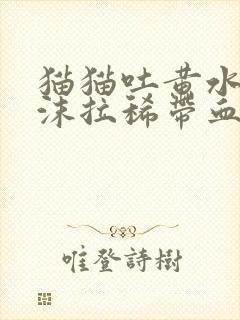 猫猫吐黄水
沫拉稀带血
唯登詩樹